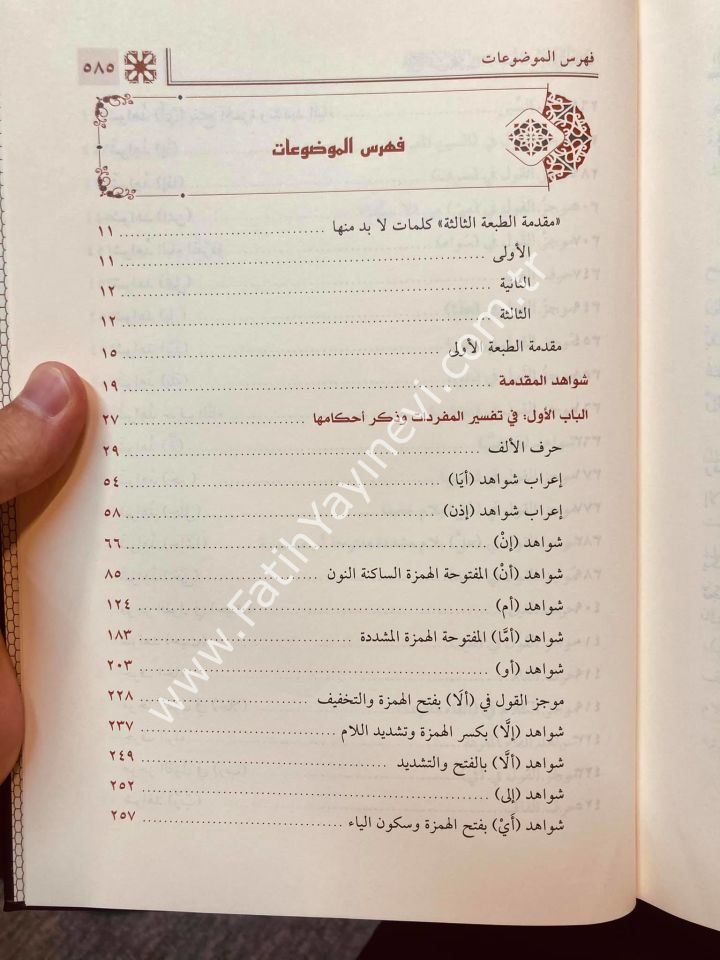 فهرس الموضوعات
٥٨٥
فهرس الموضوعات
«مقدمة الطبعة الثالثة» كلمات لا بد منها ........ ١١
الأولى ........ ١١
الثانية ........ ١٢
الثالثة ........ ١٢
مقدمة الطبعة الأولى ........ ١٥
شواهد المقدمة ........ ١٩
الباب الأول: في تفسير المفردات وذكر أحكامها ........ ٢٧
حرف الألف ........ ٢٩
إعراب شواهد (أيَا) ........ ٥٤
إعراب شواهد (إذن) ........ ٥٨
شواهد (إنْ) ........ ٦٦
شواهد (أنْ) المفتوحة الهمزة الساكنة النون ........ ٨٥
شواهد (أم) ........ ١٢٤
شواهد (أمَّا) المفتوحة الهمزة المشددة ........ ١٨٣
شواهد (أو) ........ ٢٠٣
موجز القول في (ألَا) بفتح الهمزة والتخفيف ........ ٢٢٨
شواهد (إلَّا) بكسر الهمزة وتشديد اللام ........ ٢٣٧
شواهد (ألَّا) بالفتح والتشديد ........ ٢٤٩
شواهد (إلى) ........ ٢٥٢
شواهد (أَيْ) بفتح الهمزة وسكون الياء ........ ٢٥٧
www.FatihYayinevi.com.tr